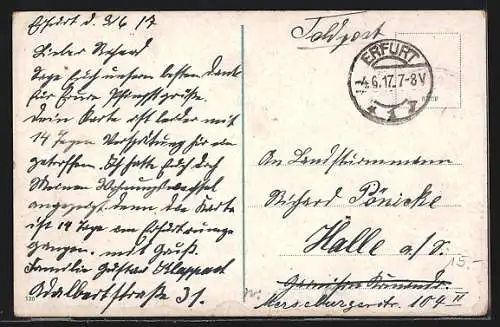 Erfurt d. 3/6 17
Lieber Richard
Sage Euch unseren besten Dank
für Eure Pfingstgrüße.
Deine Karte ist leider mit
14 Tagen Verspätung hier ein
getroffen. Ich hatte Euch doch
Meinen Wohnungswechsel
angezeigt denn die Karte
ist 14 Tage in Erfurt
gegangen. mit Gruß.
Familie Gustav Klappart
Adalbertstraße 31.
Feldpost
ERFURT
4.6.17.7-8V
1
An Landsturmmann
Richard Pönicke
Halle a/S.
15.-
Merseburgerstr. 104 II